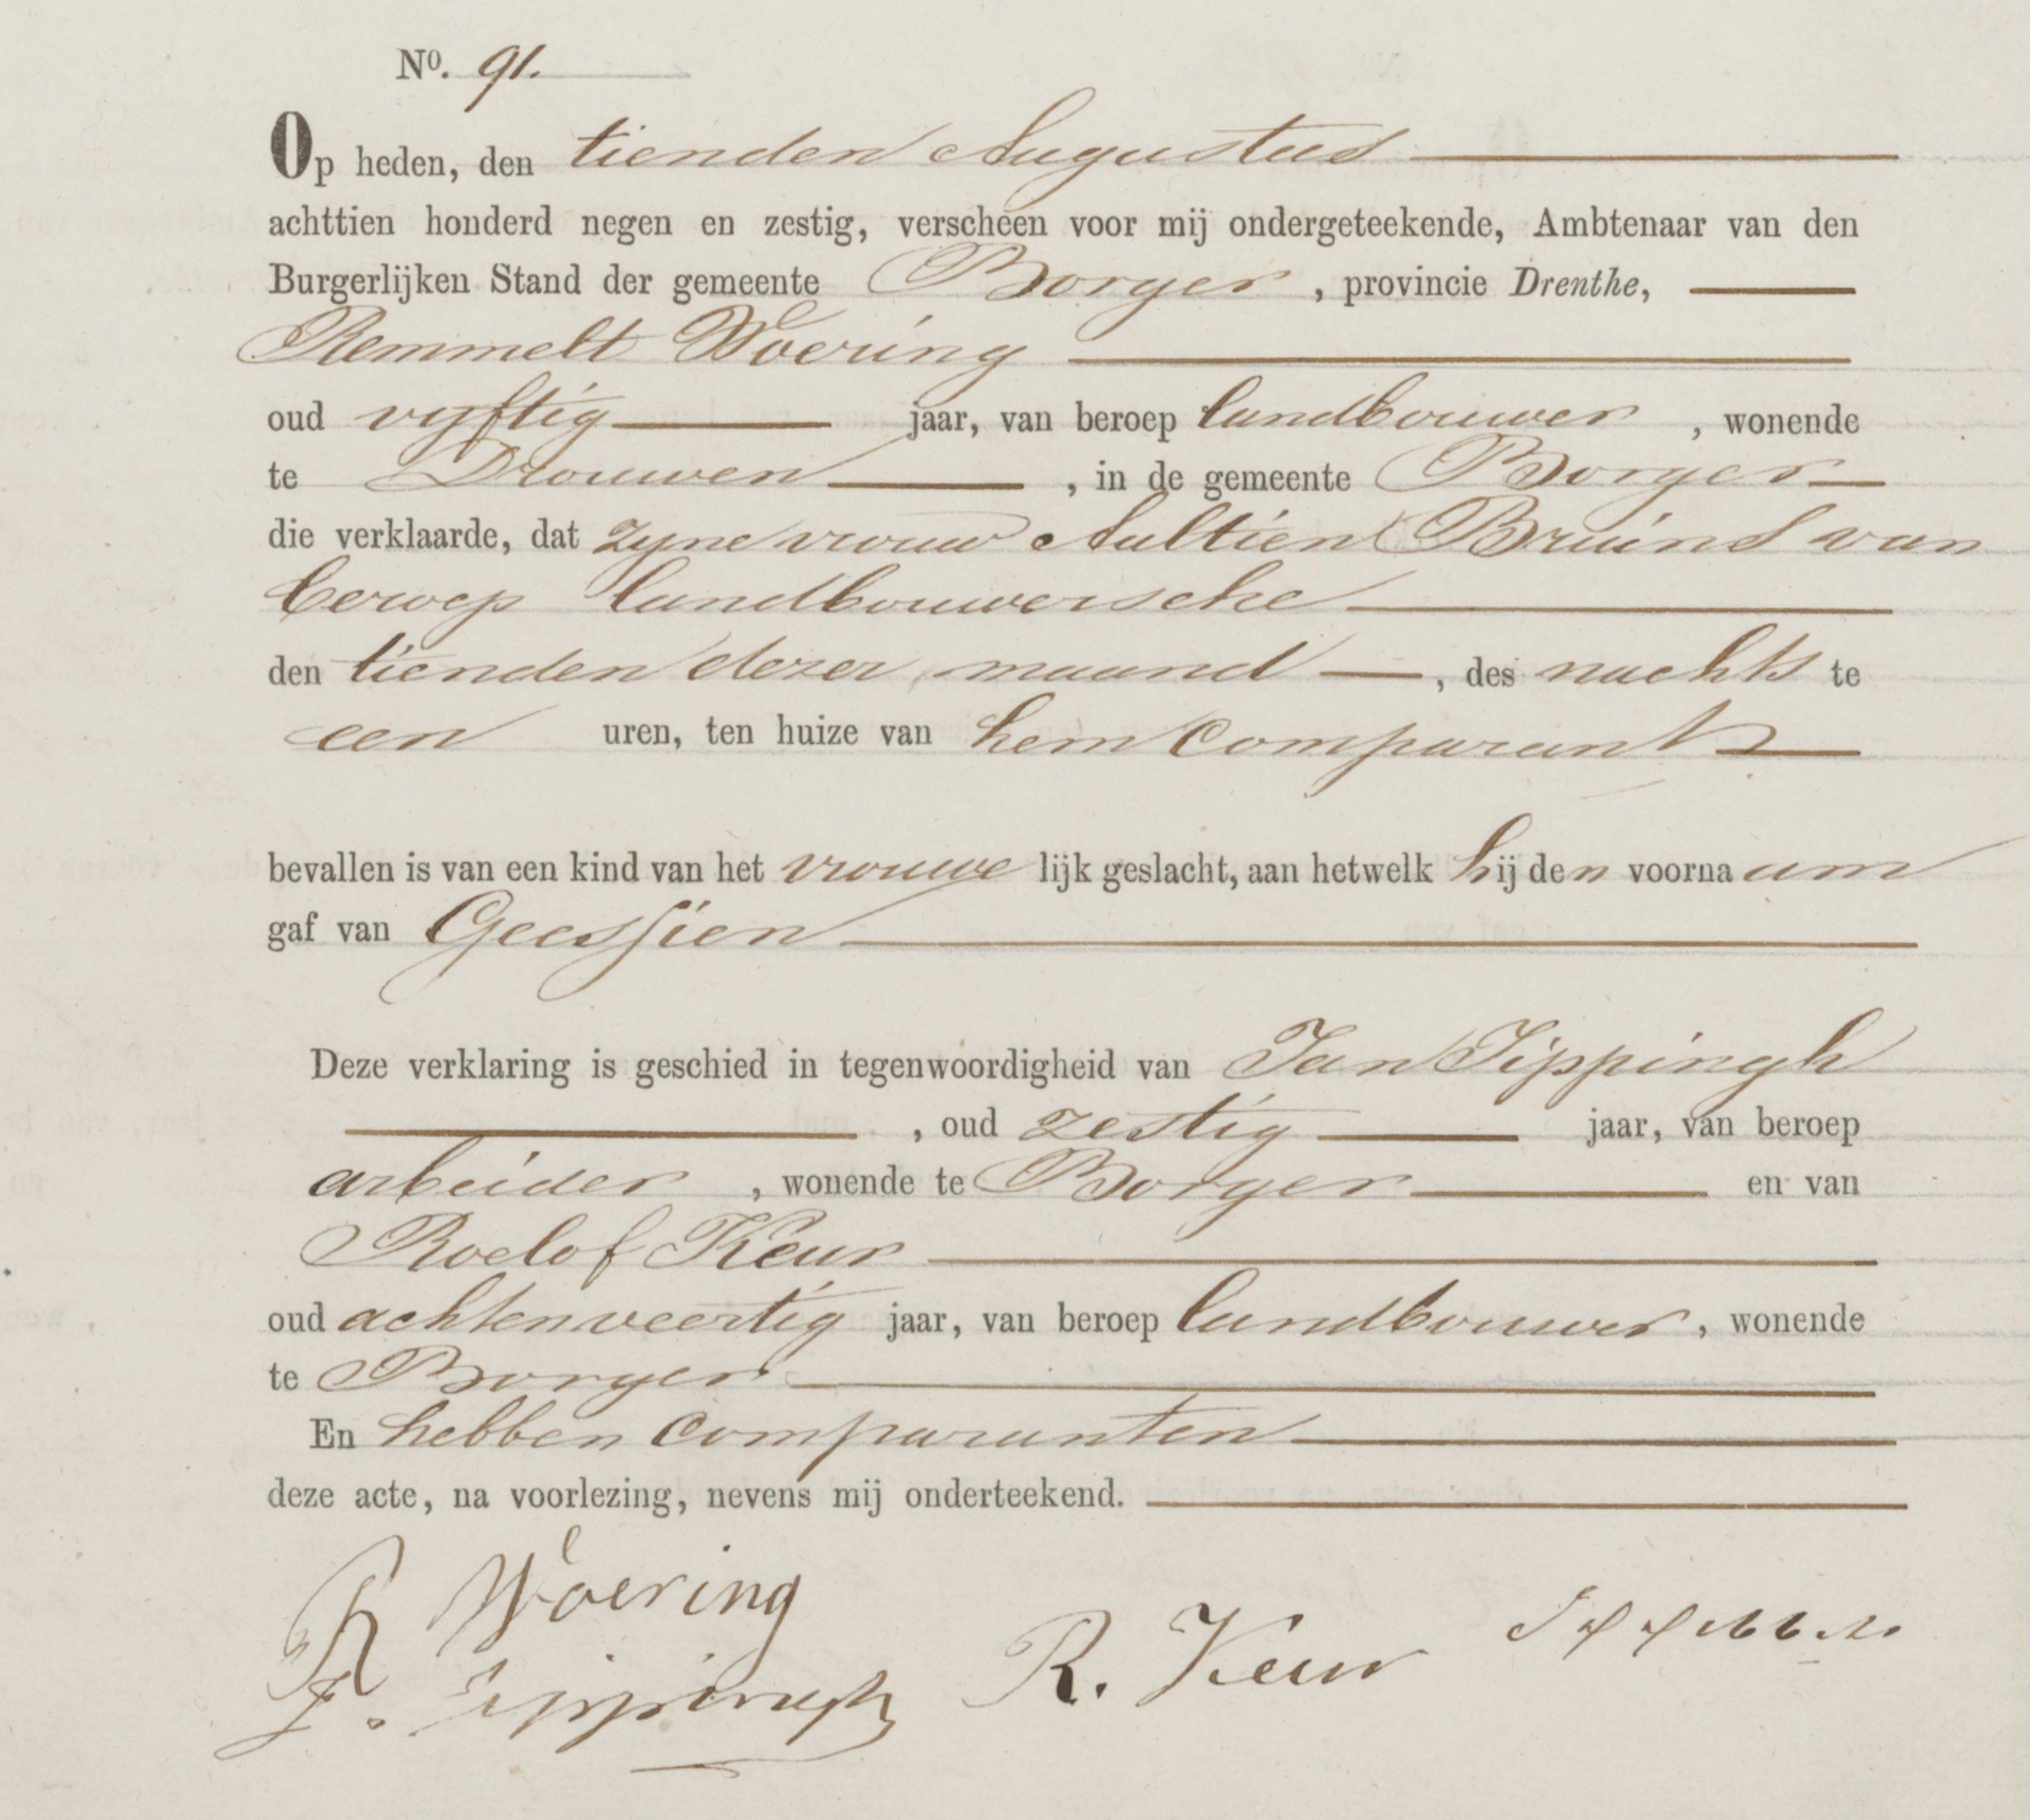 No. 91.
Op heden, den tienden Augustus
achttien honderd negen en zestig, verscheen voor mij ondergeteekende, Ambtenaar van den
Burgerlijken Stand der gemeente Borger, provincie Drenthe,
Remmelt Woering
oud vijftig jaar, van beroep landbouwer, wonende
te Drouwen, in de gemeente Borger
die verklaarde, dat zyne vrouw Aaltien Bruins van
beroep landbouwersche
den tienden dezer maand, des nachts te
een uren, ten huize van hem comparant
bevallen is van een kind van het vrouwelijk geslacht, aan hetwelk hij den voornaam
gaf van Geessien
Deze verklaring is geschied in tegenwoordigheid van Jan Tippingh
, oud zestig jaar, van beroep
arbeider, wonende te Borger en van
Roelof Keur
oud achtenveertig jaar, van beroep landbouwer, wonende
te Borger
En hebben comparanten
deze acte, na voorlezing, nevens mij onderteekend.
R Woering
J. Tippingh R. Keur